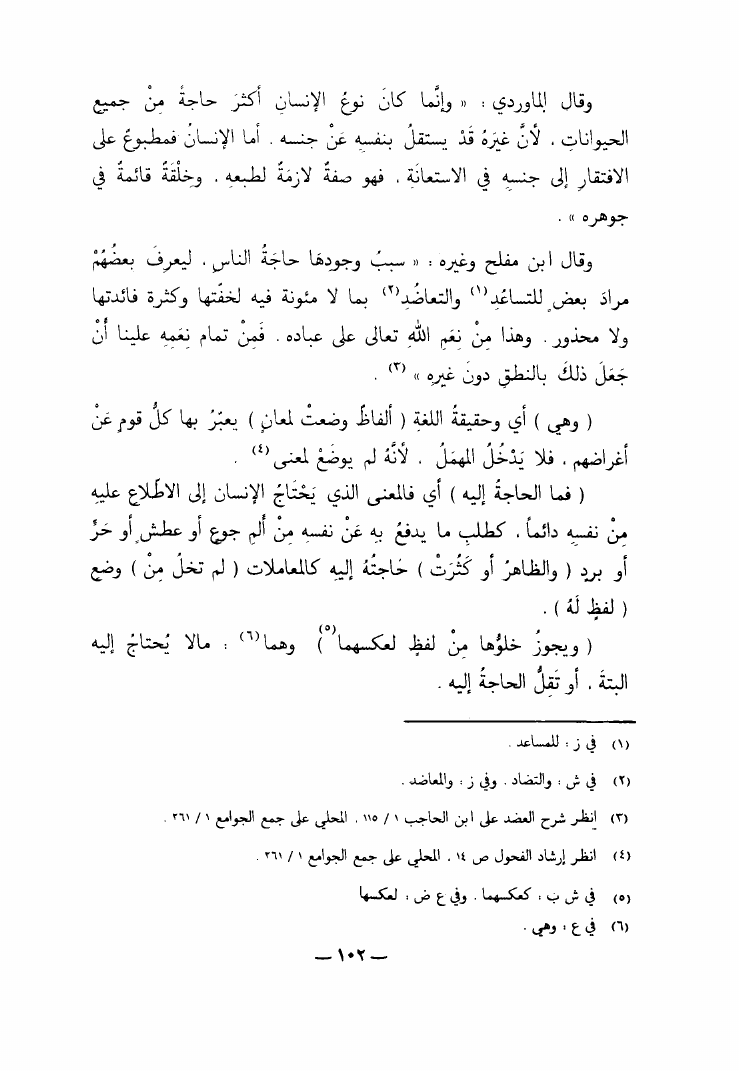 وقال الماوردي : « وإنَّما كانَ نوعُ الإنسانِ أكثرَ حاجةً مِنْ جميعِ
الحيواناتِ ، لأنَّ غيرَهُ قَدْ يستقلُ بنفسِهِ عَنْ جنسه . أما الإنسانُ فمطبوعٌ على
الافتقارِ إلى جنسِهِ في الاستعانَةِ ، فهو صفةٌ لازمَةٌ لطبعِهِ ، وخِلْقَةٌ قائمةٌ في
جوهره » .
وقال ابن مفلح وغيره : « سببُ وجودهَا حاجَةُ الناسِ ، ليعرِفَ بعضُهُمْ
مرادَ بعضٍ للتساعُدِ(١) والتعاضُدِ(٢) بما لا مئونة فيه لخفّتها وكثرة فائدتها
ولا محذور . وهذا مِنْ نِعَمِ اللهِ تعالى على عباده . فَمِنْ تمامِ نِعَمِهِ علينا أنْ
جَعَلَ ذلكَ بالنطقِ دونَ غيرِهِ » (٣) .
( وهي ) أي وحقيقةُ اللغةِ ( ألفاظٌ وضعتْ لمعانٍ ) يعبّرُ بها كلُّ قومٍ عَنْ
أغراضهم ، فلا يَدْخُلُ المهمَلُ ، لأنَّهُ لم يوضَعْ لمعنى(٤) .
( فما الحاجةُ إليه ) أي فالمعنى الذي يَحْتَاجُ الإنسان إلى الاطّلاعِ عليهِ
مِنْ نفسِهِ دائماً ، كطلبِ ما يدفعُ به عَنْ نفسه مِنْ ألمِ جوعٍ أو عطشٍ أو حَرٍّ
أو بردٍ ( والظاهرُ أو كَثُرَتْ ) حَاجتُهُ إليهِ كالمعاملات ( لم تخلُ مِنْ ) وضعِ
( لفظٍ لَهُ ) .
( ويجوزُ خلوُّها مِنْ لفظٍ لعكسهما(٥) ) وهما(٦) : مالا يُحتاجُ إليه
البتةَ ، أو تَقِلُّ الحاجةُ إليه .
(١) في ز : للمساعد .
(٢) في ش : والتضاد . وفي ز : والمعاضد .
(٣) انظر شرح العضد على ابن الحاجب ١ / ١١٥ ، المحلي على جمع الجوامع ١ / ٢٦١ .
(٤) انظر إرشاد الفحول ص ١٤ ، المحلي على جمع الجوامع ١ / ٢٦١ .
(٥) في ش ب : كعكسهما . وفي ع ض : لعكسها
(٦) في ع : وهي .
— ١٠٢ —